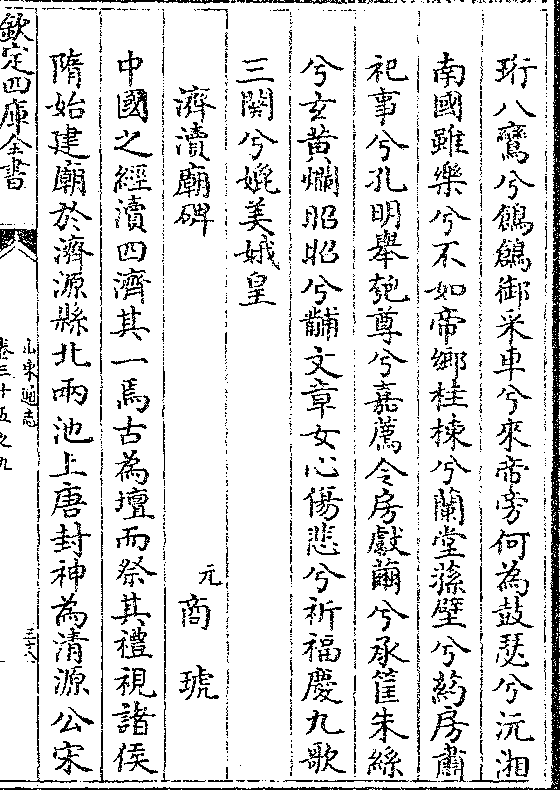 珩八鸞兮鶬鶬御采車兮來帝旁何為鼓瑟兮沅湘
南國雖樂兮不如帝鄉桂棟兮蘭堂蓀壁兮葯房肅
祀事兮孔明舉匏尊兮嘉薦令房獻繭兮承筐朱絲
兮玄黄爛昭昭兮黼文章女心傷悲兮祈福慶九歌
三闋兮媲美娥皇
濟瀆廟碑
元商琥
中國之經瀆四濟其一焉古為壇而祭其禮視諸侯
隋始建廟於濟源縣北兩池上唐封神為清源公宋
欽定四庫全書
山東通志
卷三十五之九
三十八